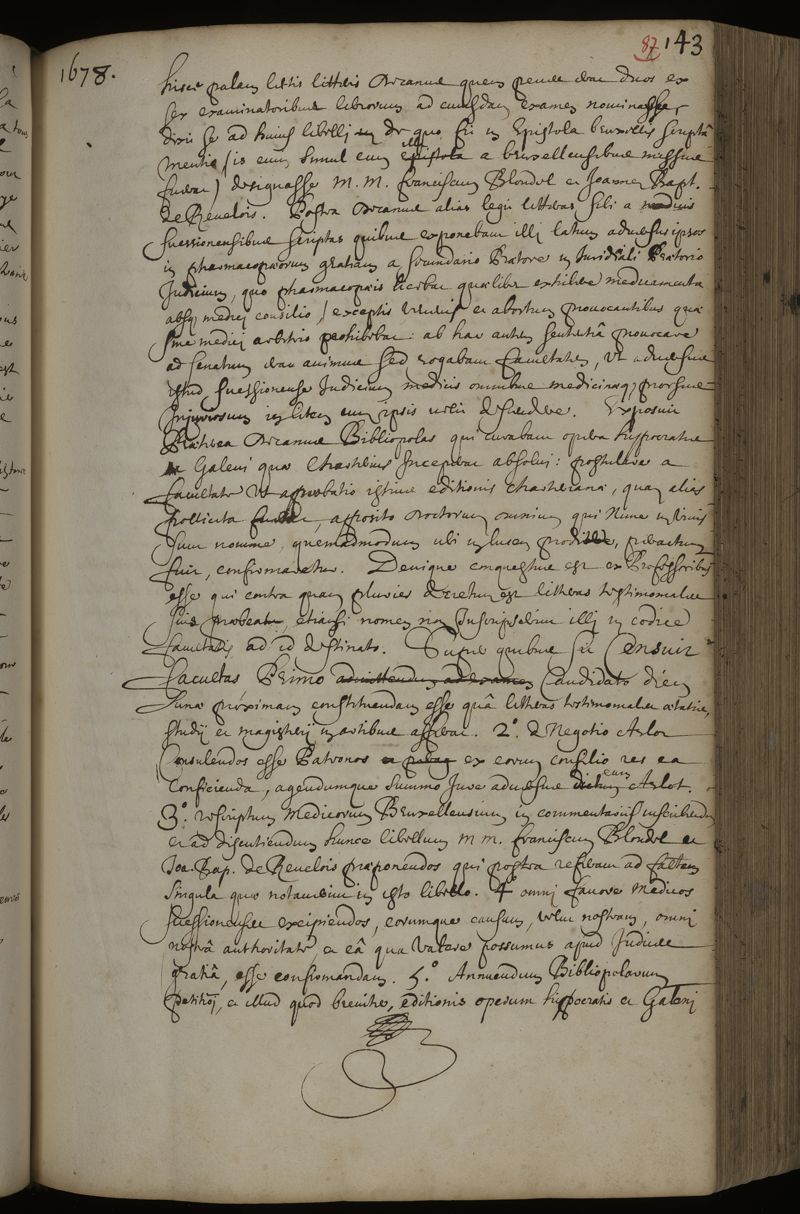 87 143
1678.
hisce palam lectis litteris Decanus quem penes erat duos ex
sex examinatoribus librorum ad cujusdam examen nominasse
dixit se ad hujus libelli de quo fit in Epistola bruxellis scripta
mentio (is enim simul cum illa epistola a bruxellensibus missus
fuerat) designasse M. M. franciscum Blondel et Joannem Bapt.
de Revelois. Postea Decanus alias legit litteras sibi a medicis
suessionensibus scriptas quibus exponebant illi latum adversus ipsos
in pharmacopoeorum gratiam a secundario Prætore in Juridiciali Prætorio
Judicium, quo pharmacopoeis licebat quælibet exhibere medicamenta
absq medici consilio, exceptis et abortum provocantibus quæ
sine medici arbitrio prohibebat: ab hac autem sententiâ provocare
ad senatum erat animus sed rogabant facultatem, ut adversus
istud suessionense Judicium medicis omnibus medicinæq prorsus
Injuriosum in litem cum ipsis vellet descendere. Exposuit
Præterea Decanus Bibliopolas qui curabant opera hippocratis
et Galeni quæ Charterius Inceperat absolvi: postulare a
facultate ut approbatio istius editionis charterianæ, quam alias
pollicita, apposito doctorum omnium qui nunc in vivis
sunt nomine, quemadmodum ubi in lucem, peractum
fuit, confirmaretur. Denique conquestus est ex Professoribus
esse qui contra quam pluries decretum est litteras testimoniales
suis præbeant, etiamsi nomen non Inscripserint illi in codice
facultatis ad id destinato. Super quibus sic Censuit
facultas Primo admittendum ad examen Candidato diem
Lunæ proximam constituendam esse quâ litteras testimoniales ætatis,
studij et magisterij in artibus afferat. 2°. de Negotio Arlot
Consulendos esse Patronos ex eorum consilio res ea
Conficienda, agendumque summo Jure adversus eum Arlot.
3°. rescriptum Medicorum Bruxellensium in commentariis inscribendum
et ad discutiendum hunce libellum m m. franciscum Blondel et
Joa. Bap. de Revelois præponendos qui postea referant ad facltem
singula quæ notaverint in isto libello. 4° omni favore Medicos
suessionenses excipiendos, eorumque causam, velut nostram, omni
nostrâ authoritate, et eâ qua valere possumus apud Judices
gratiâ, esse confirmandam. 5.° Annuendum Bibliopolarum
petitioni, et illud quod breviter, editionis operum hippocratis et Galeni